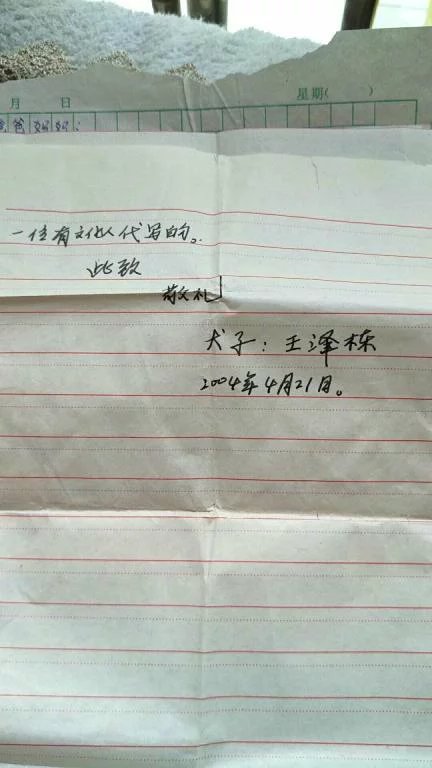 月 日 星期( )
爸妈妈:
一位有文化人代写的。
此致
敬礼
犬子:王泽栋
2004年4月21日。